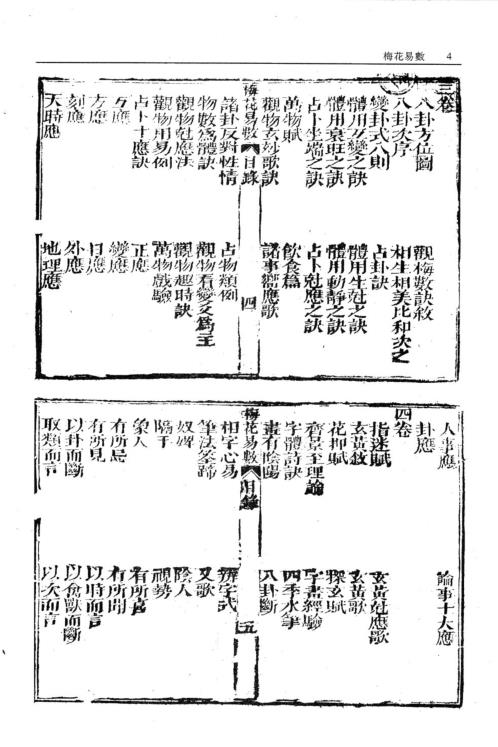 梅花易數 4
三卷
八卦方位圖
觀梅數訣敘
八卦次序
相生相美比和次之
變卦式八則
占卦訣
體用互變之訣
體用生尅之訣
體用衰旺之訣
體用動靜之訣
占卜坐端之訣
占卜尅應之訣
萬物賦
飲食篇
觀物玄妙歌訣
諸事響應歌
梅花易數 目錄 四
諸卦反對性情
占物類例
物數為體訣
觀物看變爻為主
觀物尅應法
觀物趣時訣
觀物用易例
萬物戲驗
占卜十應訣
正應
互應
變應
方應
日應
刻應
外應
天時應
地理應
人事應
論事十大應
卦應
四卷
指迷賦
玄黃尅應歌
玄黃敘
玄黃歌
花押賦
探玄賦
齊景至理論
字書經驗
字體詩訣
四季水筆
畫有陰陽
八卦斷
梅花易數 目錄 五
相字心易
辨字式
筆法筌蹄
又歌
奴婢
陰人
隔手
視勢
象人
有所喜
有所局
有所聞
有所見
以時而言
以卦而斷
以禽獸而斷
取類而言
以次而言